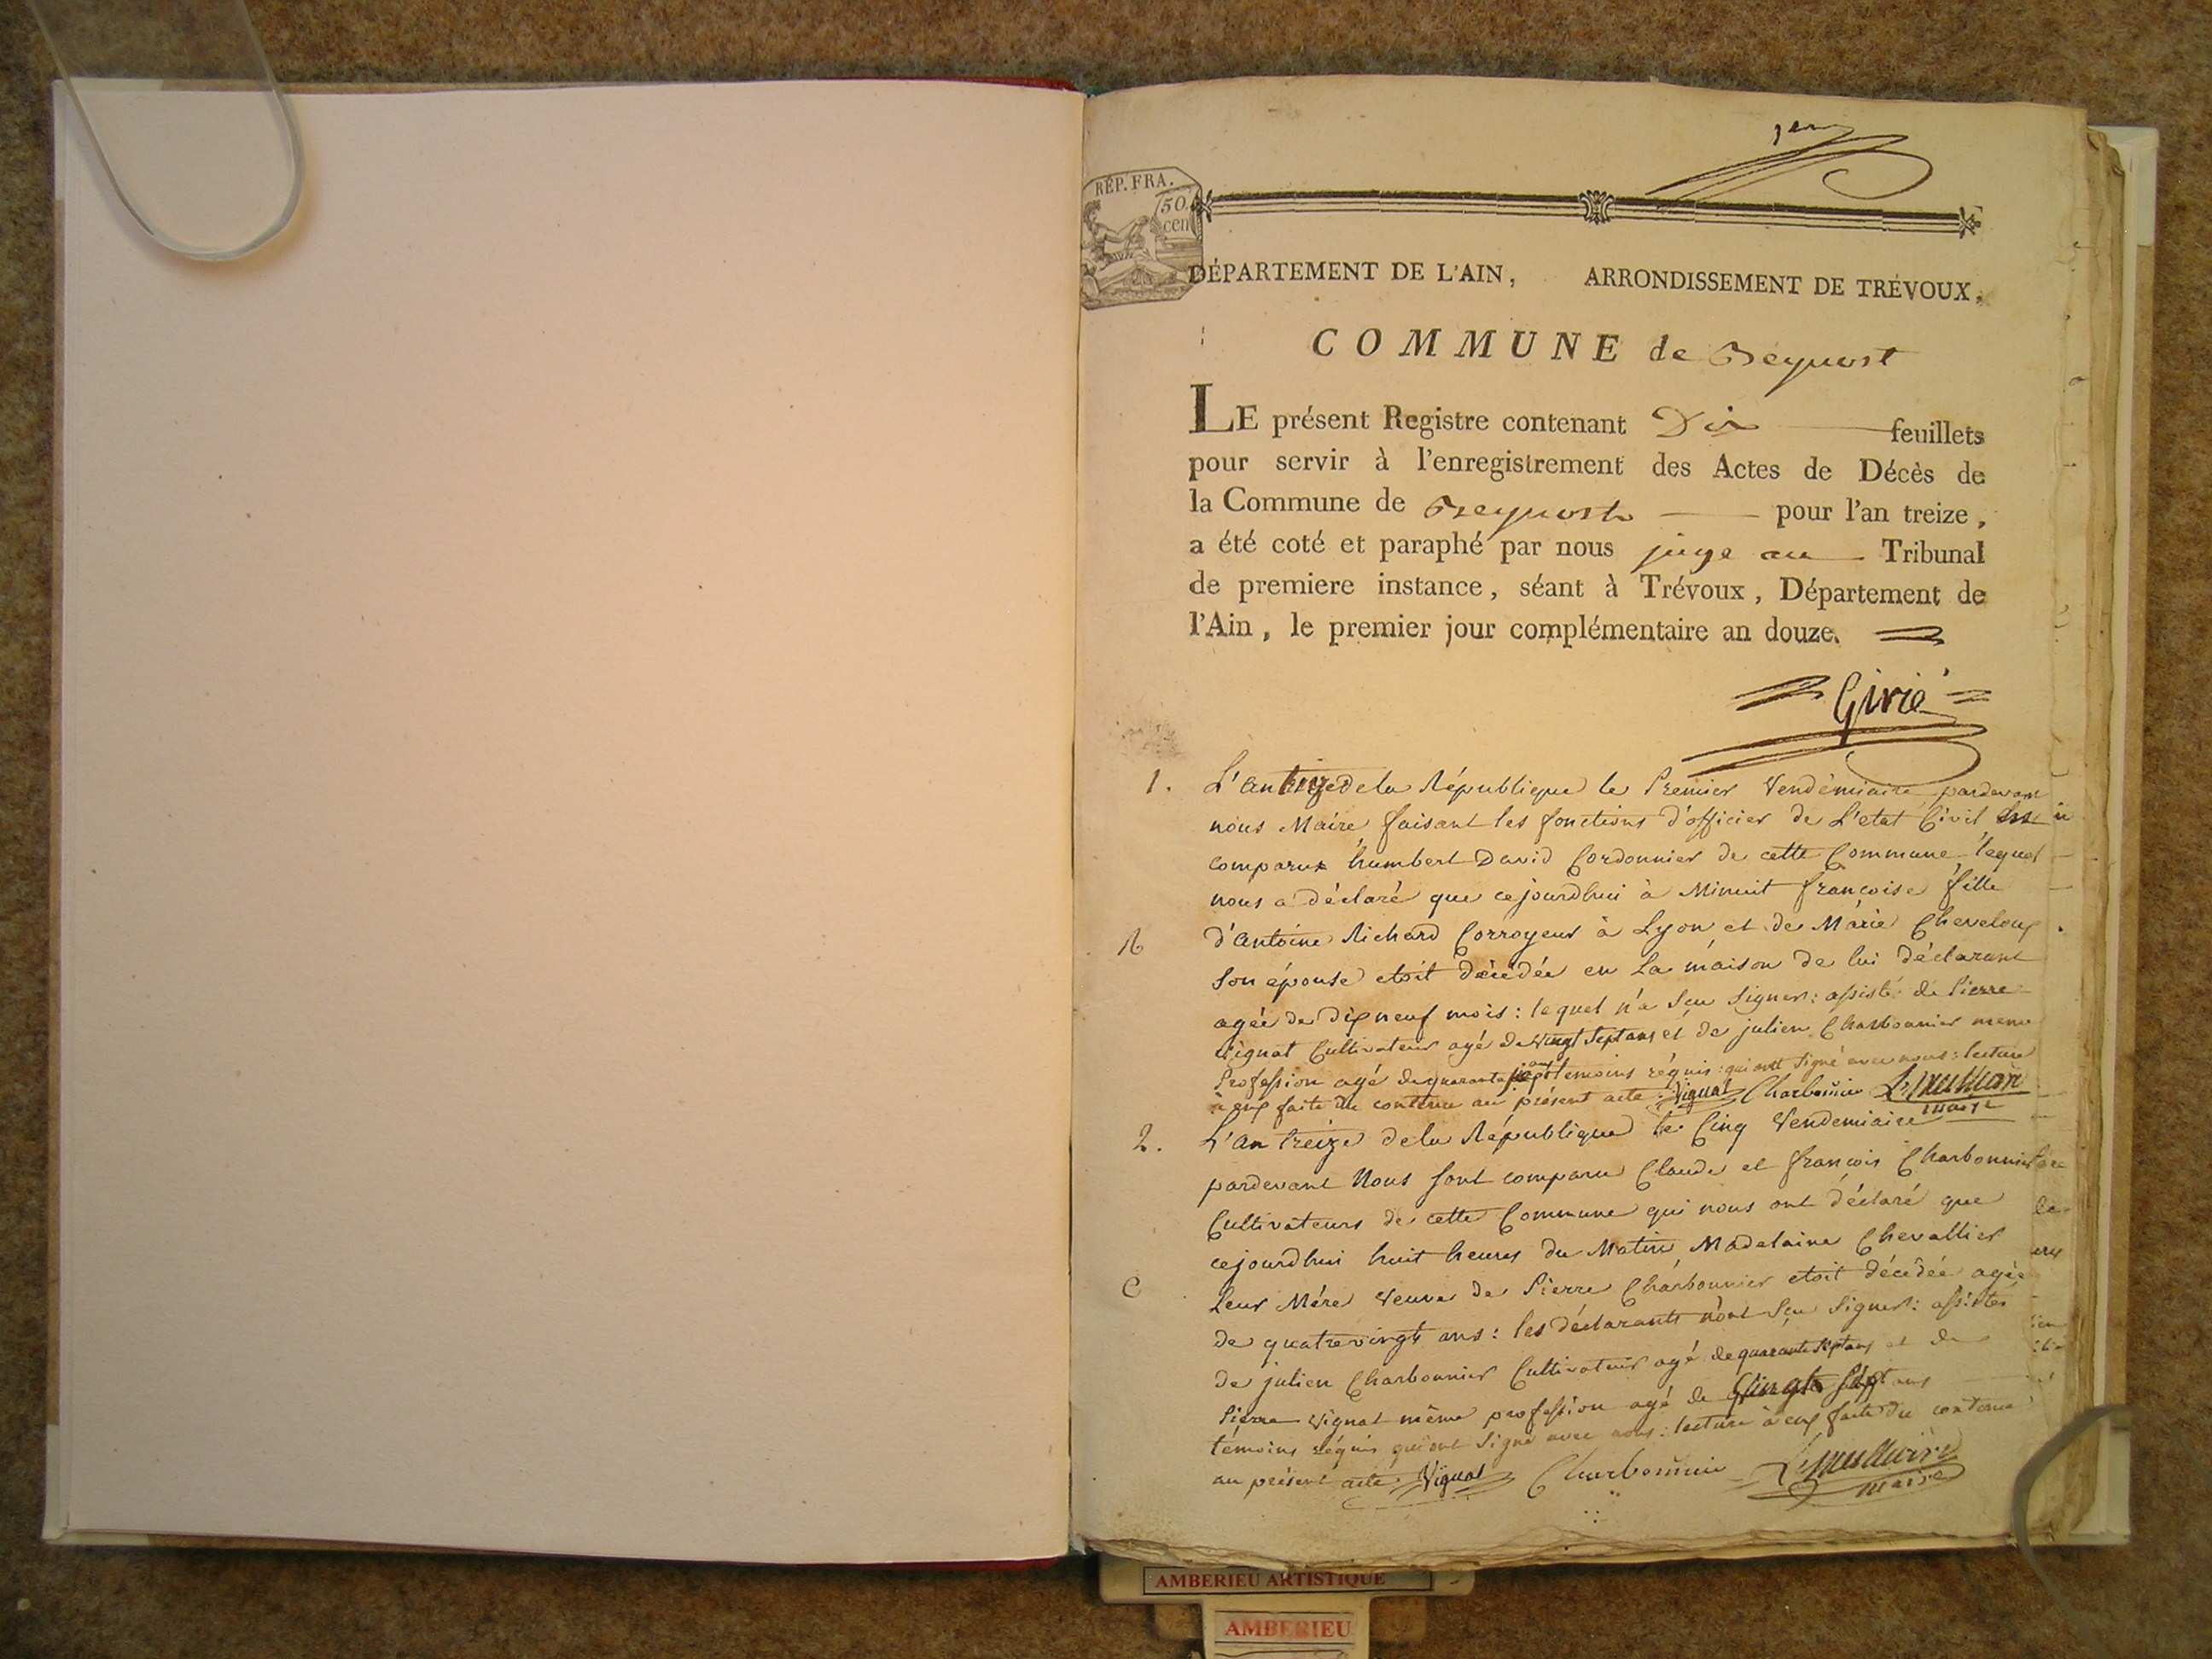 1er
RÉP. FRA.
50.
cen
DÉPARTEMENT DE L'AIN, ARRONDISSEMENT DE TRÉVOUX,
COMMUNE de Beynost
LE présent Registre contenant Dix feuillets
pour servir à l'enregistrement des Actes de Décès de
la Commune de Beynost pour l'an treize,
a été coté et paraphé par nous juge au Tribunal
de premiere instance, séant à Trévoux, Département de
l'Ain, le premier jour complémentaire an douze.
Girié
1. L'an treize de la République le Premier Vendémiaire pardevant
nous Maire faisant les fonctions d'officier de L'etat Civil est
comparu humbert David Cordonnier de cette Commune lequel
nous a déclaré que cejourdhui à Minuit françoise fille
R d'Antoine Richard Corroyeur à Lyon et de Marie Cheveloup
Son épouse etoit décédée en La maison de lui déclarant
agée de dix neuf mois : lequel n'a Seu Signer : assisté de Pierre
Vignat Cultivateur agé de vingt Sept ans et de julien Charbonnier meme
Profession agé de quarante sept ans temoins réquis : qui ont Signé avec nous : lecture
à eux faite du contenu au présent acte : Vignat Charbonnier
maire
2. L'an treize de la République le Cinq Vendemiaire
pardevant Nous sont comparu Claude et françois Charbonnier
Cultivateurs de cette Commune qui nous ont déclaré que
cejourdhui huit heures du Matin Madelaine Chevallier
C Leur Mére Veuve de Pierre Charbonnier etoit décédée agée
de quatrevingt ans : les déclarants n'ont Seu Signer : assistés
de julien Charbonnier Cultivateur agé de quarante Sept ans et de
Pierre Vignat même profession agé de Vingt Sept ans
témoins réquis qui ont Signé avec nous : lecture à eux faite du contenu
au présent acte : Vignat Charbonnier
maire
AMBERIEU ARTISTIQUE
AMBERIEU